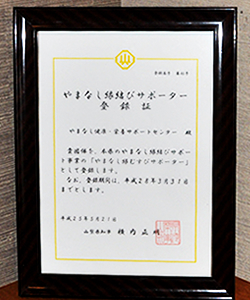 やまなし縁結びサポーター
登録証
やまなし健康・栄養サポートセンター 殿
貴団体を、本県のやまなし縁結びサポー
ト事業の「やまなし縁むすびサポーター」
として登録します。
なお、登録期間は、平成28年3月31日
までとします。
平成25年3月21日
山梨県知事 横内正明